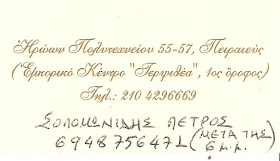 Ηρώων Πολυτεχνείου 55-57, Πειραιεύς
(Εμπορικό Κέντρο "Τερψιθέα", 1ος όροφος)
Τηλ.: 210 4296669
ΣΟΛΟΜΩΝΙΔΗΣ ΠΕΤΡΟΣ
6948756471 (ΜΕΤΑ ΤΗΣ
6 μ.μ.